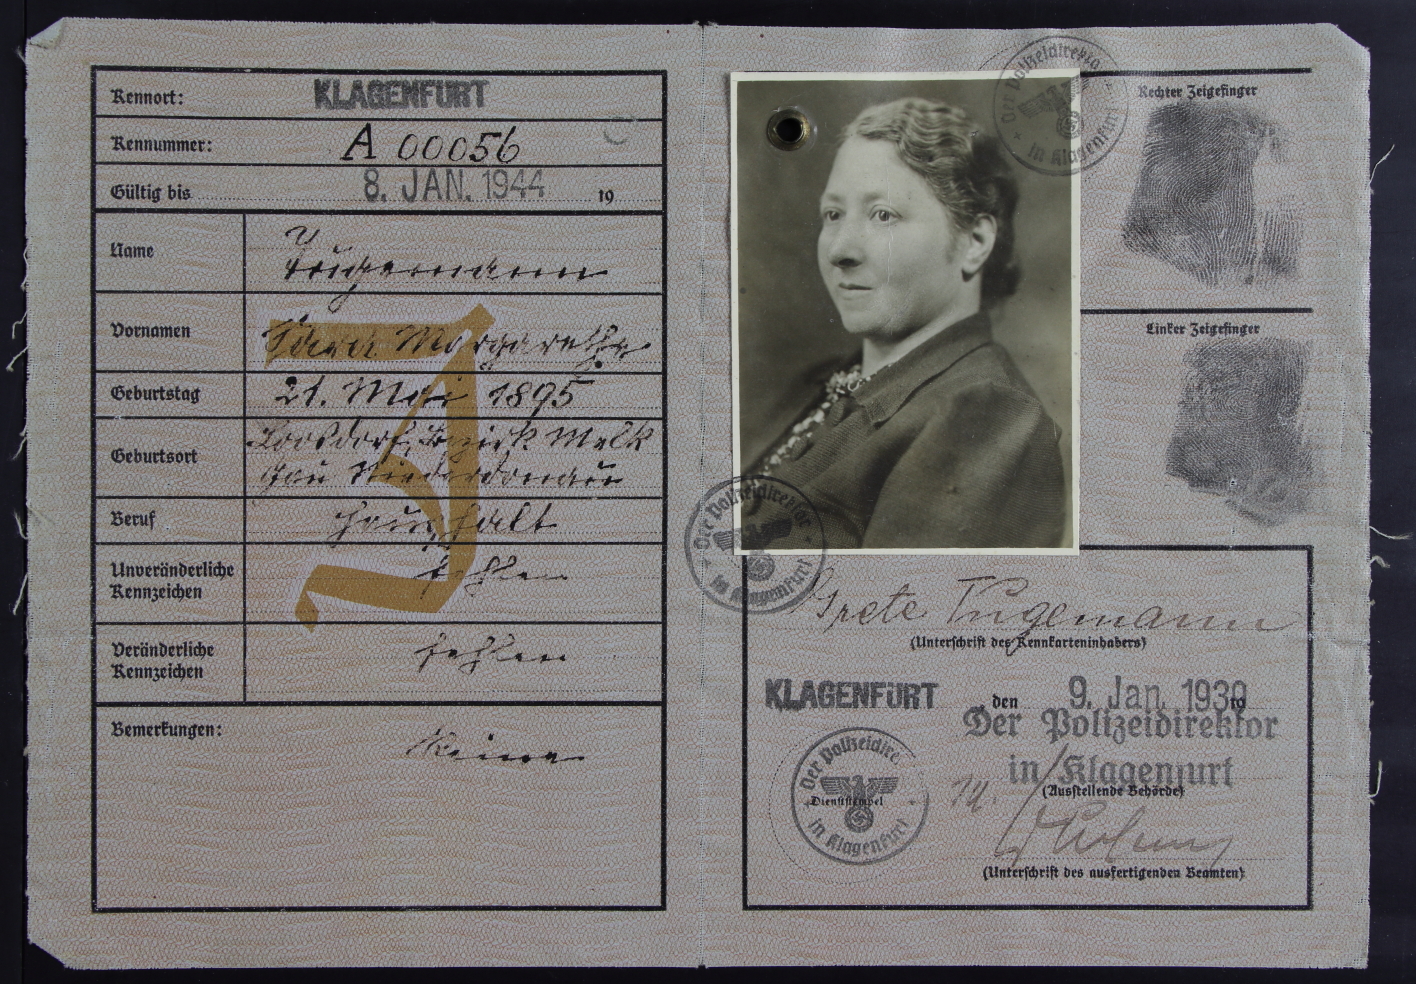 Kennort: KLAGENFURT
Kennummer: A 00056
Gültig bis 8. JAN. 1944 19
Name
Tügemann
Vornamen Sara Margarethe
Geburtstag 21. Mai 1895
Geburtsort Loosdorf, Bezirk Melk
Gau Niederdonau
Beruf Haushalt
Unveränderliche Kennzeichen fehlen
Veränderliche Kennzeichen fehlen
Bemerkungen: Keine
J
Rechter Zeigefinger
Linker Zeigefinger
Der Polizeidirektor
in Klagenfurt
Der Polizeidirektor
in Klagenfurt
Grete Tügemann
(Unterschrift des Kennkarteninhabers)
KLAGENFURT den 9. Jan. 1939 19
Der Polizeidirektor
in Klagenfurt
(Ausstellende Behörde)
Der Polizeidire
Dienststempel
in Klagenfurt
(Unterschrift des ausfertigenden Beamten)